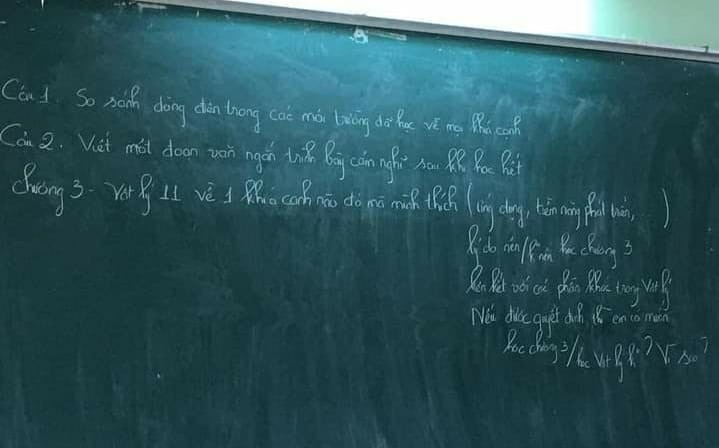 Câu 1. So sánh dòng điện trong các môi trường đã học về mọi khía cạnh
Câu 2. Viết một đoạn văn ngắn trình bày cảm nghĩ sau khi học hết
chương 3 - Vật lý 11 về 1 khía cạnh nào đó mà mình thích (ứng dụng, tiềm năng phát triển, ... )
lý do nên/k nên học chương 3
liên kết với các phần khác trong Vật lý
Nếu được quyết định thì em có muốn
học chương 3/học Vật lý k? Vì sao?